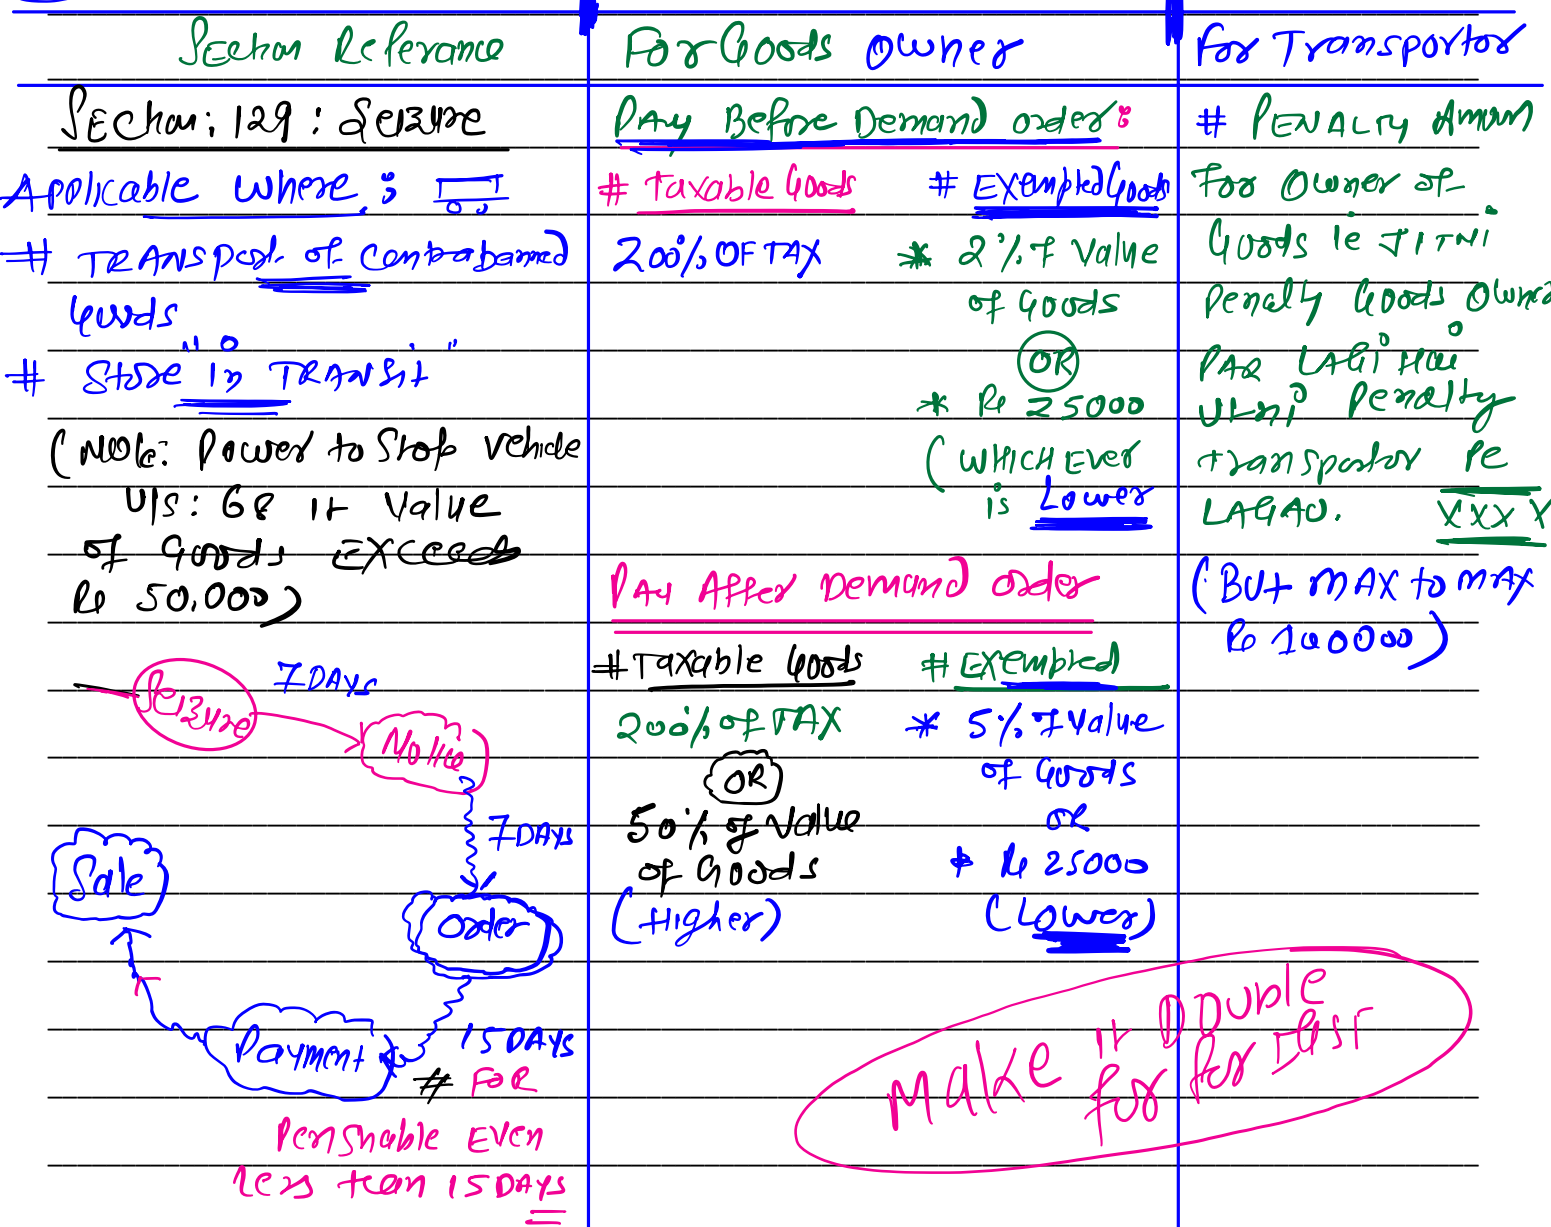 Section Referance
Section: 129: Seizure
Applicable where:
# TRANSport of Contrabanned
Goods
# Store "in TRANSit"
(Note: Power to Stop vehicle
U/s: 68 if Value
of Goods EXCeeds
Rs 50,000)
Seizure
7 DAYS
Notice
7 DAYS
Order
15 DAYS
Payment
Sale
# FOR
Perishable EVen
less than 15 DAYS
For Goods Owner
PAy Before Demand order:
# Taxable Goods
200% OF TAX
# EXempted Goods
* 2% of Value
of Goods
OR
* Rs 25000
(WHICH Ever
is Lower
PAy After Demand Order
# Taxable Goods
200% of TAX
OR
50% of Value
of Goods
(Higher)
# EXempted
* 5% of Value
of Goods
OR
* Rs 25000
(Lower)
Make it DOUble
for for IGST
For Transportor
# PENALTy Amoun
For Owner of
Goods ie JITNI
Penalty Goods Owner
PAR LAGi Hai
Utni Penalty
transportor Pe
LAGAO. XXXX
(BUt MAX to MAX
Rs 100000)